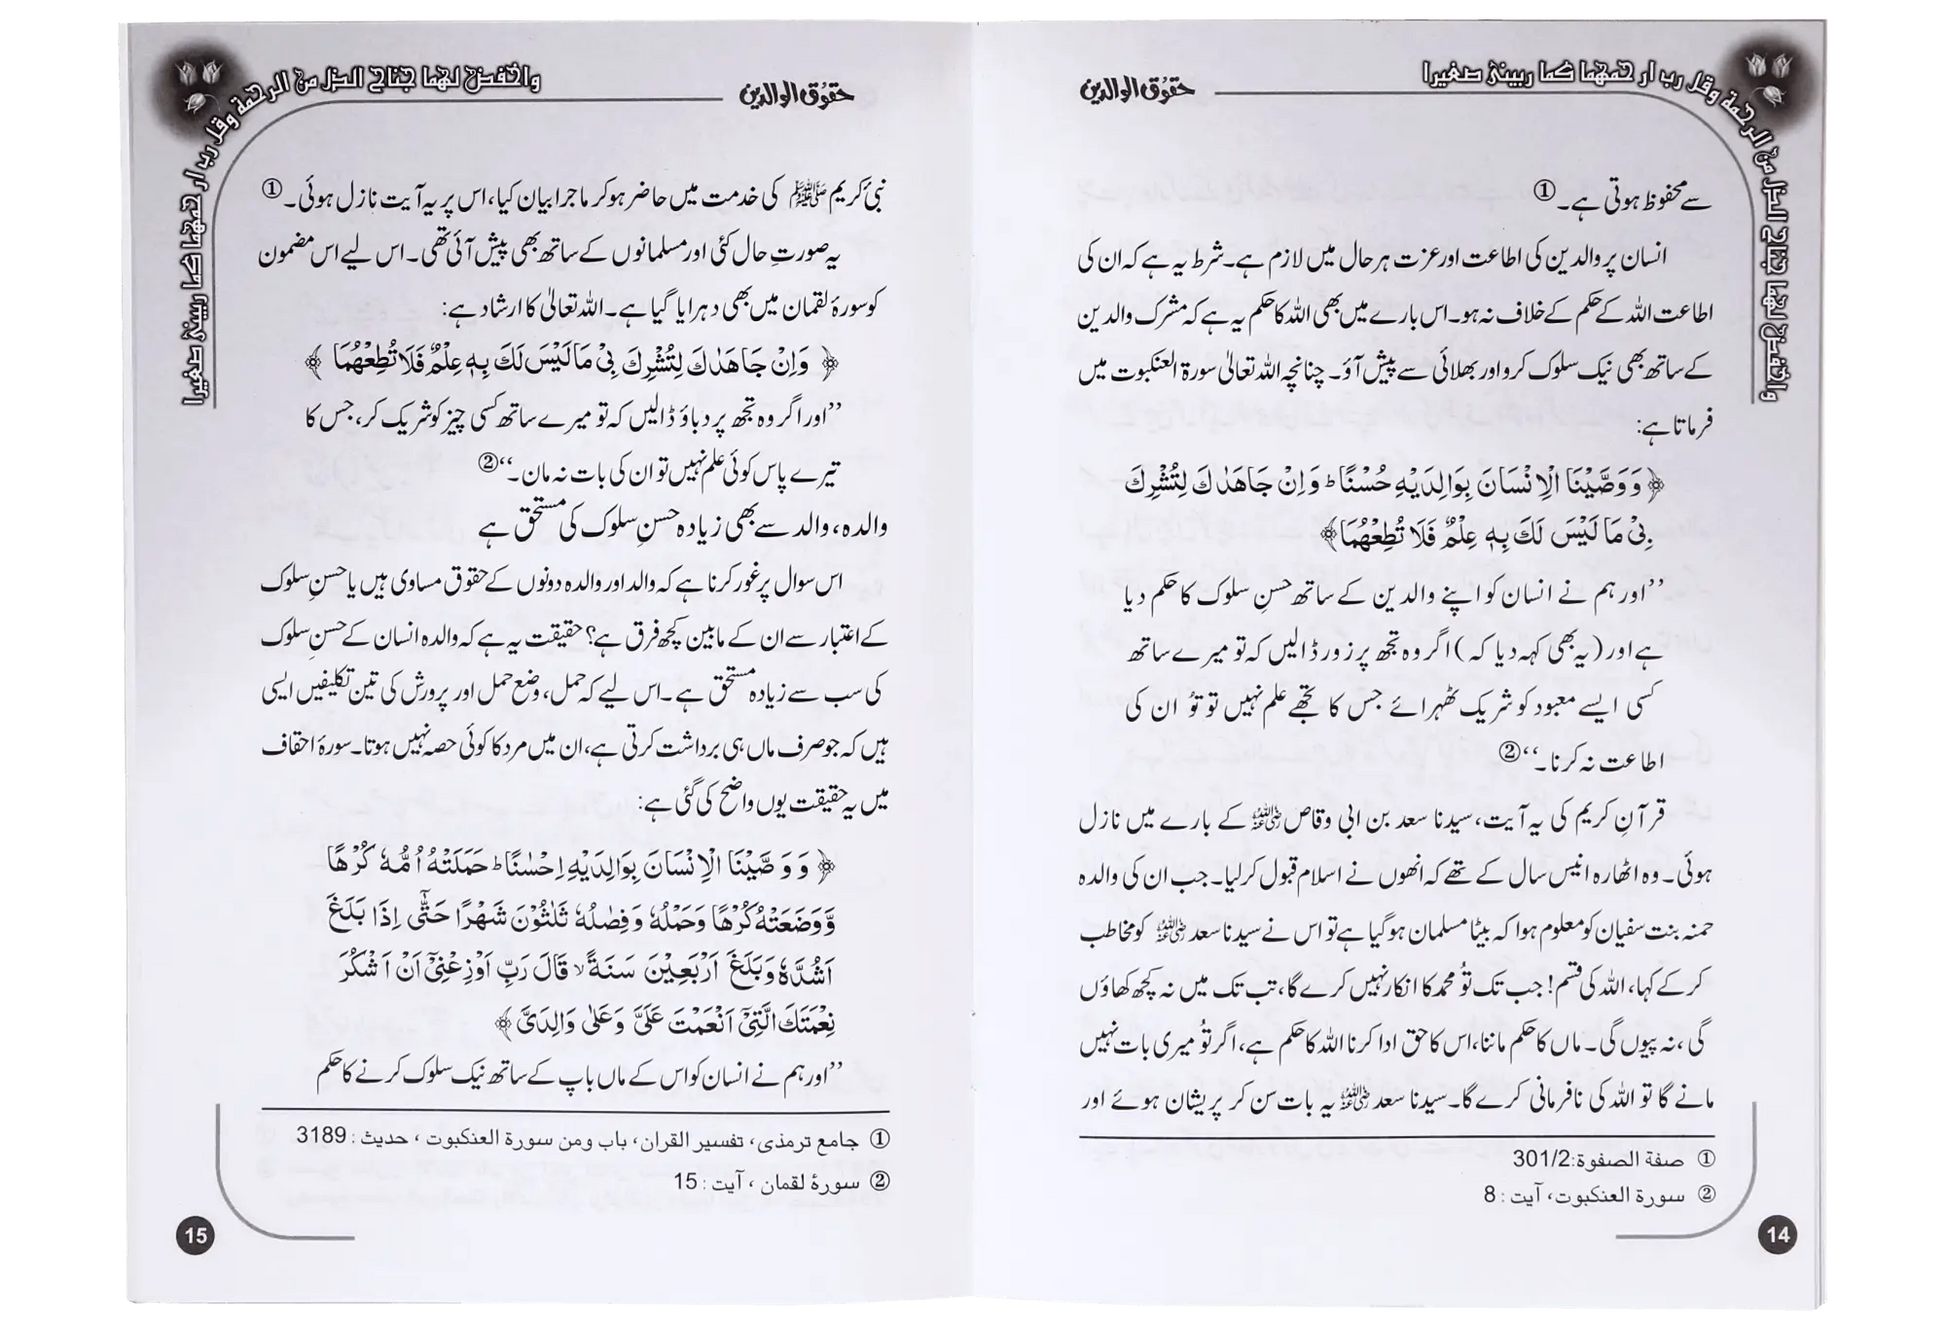 واخفض لهما جناح الذل من الرحمة وقل رب ارحمهما كما ربيني صغيرا
حقوق الوالدین
سے محفوظ ہوتی ہے۔①
انسان پر والدین کی اطاعت اور عزت ہر حال میں لازم ہے۔ شرط یہ ہے کہ ان کی
اطاعت اللہ کے حکم کے خلاف نہ ہو۔ اس بارے میں بھی اللہ کا حکم یہ ہے کہ مشرک والدین
کے ساتھ بھی نیک سلوک کرو اور بھلائی سے پیش آؤ۔ چنانچہ اللہ تعالیٰ سورۃ العنکبوت میں
فرماتا ہے:
﴿ وَ وَصَّيْنَا الْاِنْسَانَ بِوَالِدَيْهِ حُسْنًا ؕ وَ اِنْ جَاهَدٰكَ لِتُشْرِكَ
بِیْ مَا لَيْسَ لَكَ بِهٖ عِلْمٌ فَلَا تُطِعْهُمَا ﴾
’’اور ہم نے انسان کو اپنے والدین کے ساتھ حسنِ سلوک کا حکم دیا
ہے اور (یہ بھی کہہ دیا کہ) اگر وہ تجھ پر زور ڈالیں کہ تو میرے ساتھ
کسی ایسے معبود کو شریک ٹھہرائے جس کا تجھے علم نہیں تو تُو ان کی
اطاعت نہ کرنا۔‘‘②
قرآنِ کریم کی یہ آیت، سیدنا سعد بن ابی وقاص رضی اللہ عنہ کے بارے میں نازل
ہوئی۔ وہ اٹھارہ انیس سال کے تھے کہ انھوں نے اسلام قبول کرلیا۔ جب ان کی والدہ
حمنہ بنت سفیان کو معلوم ہوا کہ بیٹا مسلمان ہوگیا ہے تو اس نے سیدنا سعد رضی اللہ عنہ کو مخاطب
کرکے کہا، اللہ کی قسم! جب تک تُو محمد کا انکار نہیں کرے گا، تب تک میں نہ کچھ کھاؤں
گی، نہ پیوں گی۔ ماں کا حکم ماننا، اس کا حق ادا کرنا اللہ کا حکم ہے، اگر تُو میری بات نہیں
مانے گا تو اللہ کی نافرمانی کرے گا۔ سیدنا سعد رضی اللہ عنہ یہ بات سن کر پریشان ہوئے اور
① صفة الصفوة:301/2
② سورۃ العنکبوت، آیت : 8
14
واخفض لهما جناح الذل من الرحمة وقل رب ارحمهما كما ربيني صغيرا
حقوق الوالدین
نبیٔ کریم ﷺ کی خدمت میں حاضر ہو کر ماجرا بیان کیا، اس پر یہ آیت نازل ہوئی۔①
یہ صورتِ حال کئی اور مسلمانوں کے ساتھ بھی پیش آئی تھی۔ اس لیے اس مضمون
کو سورۂ لقمان میں بھی دہرایا گیا ہے۔ اللہ تعالیٰ کا ارشاد ہے:
﴿ وَ اِنْ جَاهَدٰكَ لِتُشْرِكَ بِیْ مَا لَيْسَ لَكَ بِهٖ عِلْمٌ فَلَا تُطِعْهُمَا ﴾
’’اور اگر وہ تجھ پر دباؤ ڈالیں کہ تو میرے ساتھ کسی چیز کو شریک کر، جس کا
تیرے پاس کوئی علم نہیں تو ان کی بات نہ مان۔‘‘②
والدہ، والد سے بھی زیادہ حسنِ سلوک کی مستحق ہے
اس سوال پر غور کرنا ہے کہ والد اور والدہ دونوں کے حقوق مساوی ہیں یا حسنِ سلوک
کے اعتبار سے ان کے مابین کچھ فرق ہے؟ حقیقت یہ ہے کہ والدہ انسان کے حسنِ سلوک
کی سب سے زیادہ مستحق ہے۔ اس لیے کہ حمل، وضع حمل اور پرورش کی تین تکلیفیں ایسی
ہیں کہ جو صرف ماں ہی برداشت کرتی ہے، ان میں مرد کا کوئی حصہ نہیں ہوتا۔ سورۂ احقاف
میں یہ حقیقت یوں واضح کی گئی ہے:
﴿ وَ وَصَّيْنَا الْاِنْسَانَ بِوَالِدَيْهِ اِحْسٰنًا ؕ حَمَلَتْهُ اُمُّهٗ كُرْهًا
وَّ وَضَعَتْهُ كُرْهًا وَ حَمْلُهٗ وَ فِصٰلُهٗ ثَلٰثُوْنَ شَهْرًا حَتّٰۤی اِذَا بَلَغَ
اَشُدَّهٗ وَ بَلَغَ اَرْبَعِيْنَ سَنَةً ۙ قَالَ رَبِّ اَوْزِعْنِیْۤ اَنْ اَشْكُرَ
نِعْمَتَكَ الَّتِیْۤ اَنْعَمْتَ عَلَیَّ وَ عَلٰی وَالِدَیَّ ﴾
’’اور ہم نے انسان کو اس کے ماں باپ کے ساتھ نیک سلوک کرنے کا حکم
① جامع ترمذی، تفسیر القران، باب ومن سورة العنکبوت ، حدیث : 3189
② سورۂ لقمان ، آیت : 15
15